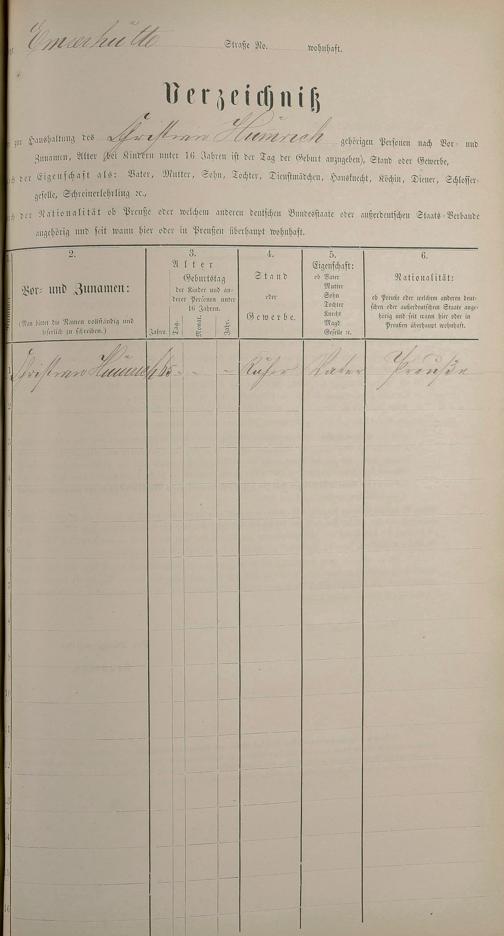 Emserhütte Straße No. wohnhaft.
Verzeichniß
zur Haushaltung des Christian Hümrich gehörigen Personen nach Vor- und
Zunamen, Alter (bei Kindern unter 16 Jahren ist der Tag der Geburt anzugeben), Stand oder Gewerbe,
der Eigenschaft als: Vater, Mutter, Sohn, Tochter, Dienstmädchen, Hausknecht, Köchin, Diener, Schlosser-
geselle, Schreinerlehrling ꝛc.,
der Nationalität ob Preuße oder welchem anderen deutschen Bundesstaate oder außerdeutschen Staats-Verbande
angehörig und seit wann hier oder in Preußen überhaupt wohnhaft.
2.
Vor- und Zunamen:
(Man bittet die Namen vollständig und
leserlich zu schreiben.)
3.
Alter
Geburtstag
der Kinder und an-
derer Personen unter
16 Jahren.
Jahre.
Tag.
Monat.
Jahr.
4.
Stand
oder
Gewerbe.
5.
Eigenschaft:
ob Vater
Mutter
Sohn
Tochter
Knecht
Magd
Geselle ꝛc.
6.
Nationalität:
ob Preuße oder welchem anderen deut-
schen oder außerdeutschen Staate ange-
hörig und seit wann hier oder in
Preußen überhaupt wohnhaft.
1 Christian Hümrich 65 - - - Küfer Vater Preuße
2
3
4
5
6
7
8
9
10
11
12
13
14
15
16